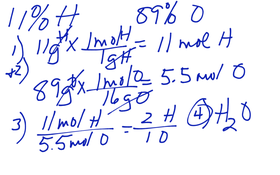 11% H 89% O
1) 11gH x 1molH/1gH = 11 mol H
2) 89gO x 1molO/16gO = 5.5 mol O
3) 11mol H/5.5mol O = 2 H/1 O 4) H₂O